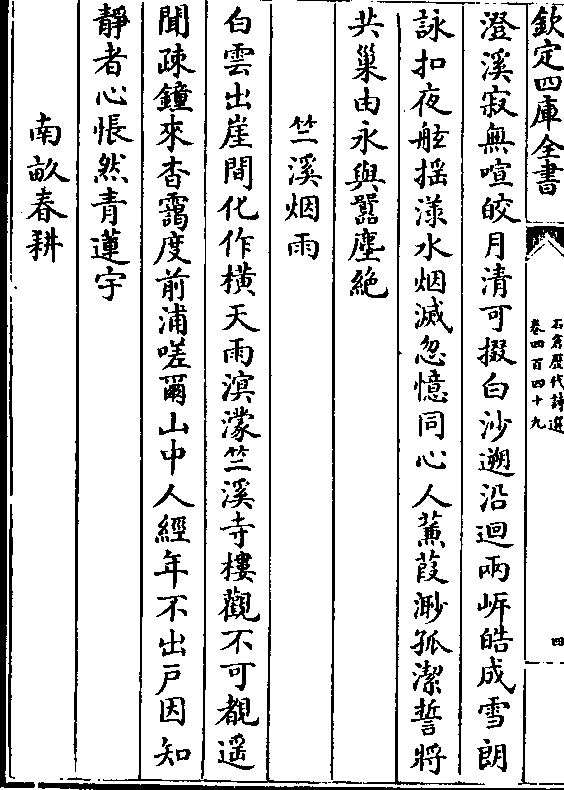 欽定四庫全書
石倉歷代詩選
卷四百四十九
四
澄溪寂無喧皎月清可掇白沙遡沿迴兩岍皓成雪朗
詠扣夜舷揺漾水烟滅忽憶同心人蒹葭渺孤潔誓將
共巢由永與嚻塵絶
竺溪烟雨
白雲出崖間化作横天雨溟濛竺溪寺樓觀不可覩遥
聞疎鐘來杳靄度前浦嗟爾山中人經年不出戸因知
靜者心悵然青蓮宇
南畝春耕